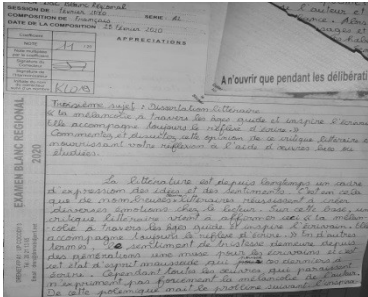 Blanc Régional
SESSION DE : février 2020
COMPOSITION DE : Français SERIE : A1
DATE DE LA COMPOSITION 20 février 2020
Coefficient
APPRECIATIONS
NOTE 11
KL09
l'auteur et
A n'ouvrir que pendant les délibérati
EXAMEN BLANC REGIONAL
2020
Troisième sujet : Dissertation littéraire
« La mélancolie à travers les âges guide et inspire l'écrivain
Elle accompagne toujours le réflexe d'écrire. »
Commentez et discutez cette opinion de ce critique littéraire en
nourrissant votre réflexion à l'aide d'œuvres lues ou
étudiées.
La littérature est depuis longtemps un cadre
d'expression des idées et des sentiments. C'est en cela
que de nombreuses littéraires réussissent à créer
diverses émotions chez le lecteur. Sur cette base, un
critique littéraire vient à affirmer ceci « la mélan-
colie à travers les âges guide et inspire l'écrivain. Elle
accompagne toujours le réflexe d'écrire. » En d'autres
termes, le sentiment de tristesse demeure depuis
des générations une muse pour les écrivains et
cet état d'esprit ces derniers à
écrire. Cependant toutes les œuvres
n'expriment pas forcément la mélancolie de l'auteur.
De cette polémique naît le problème suivant